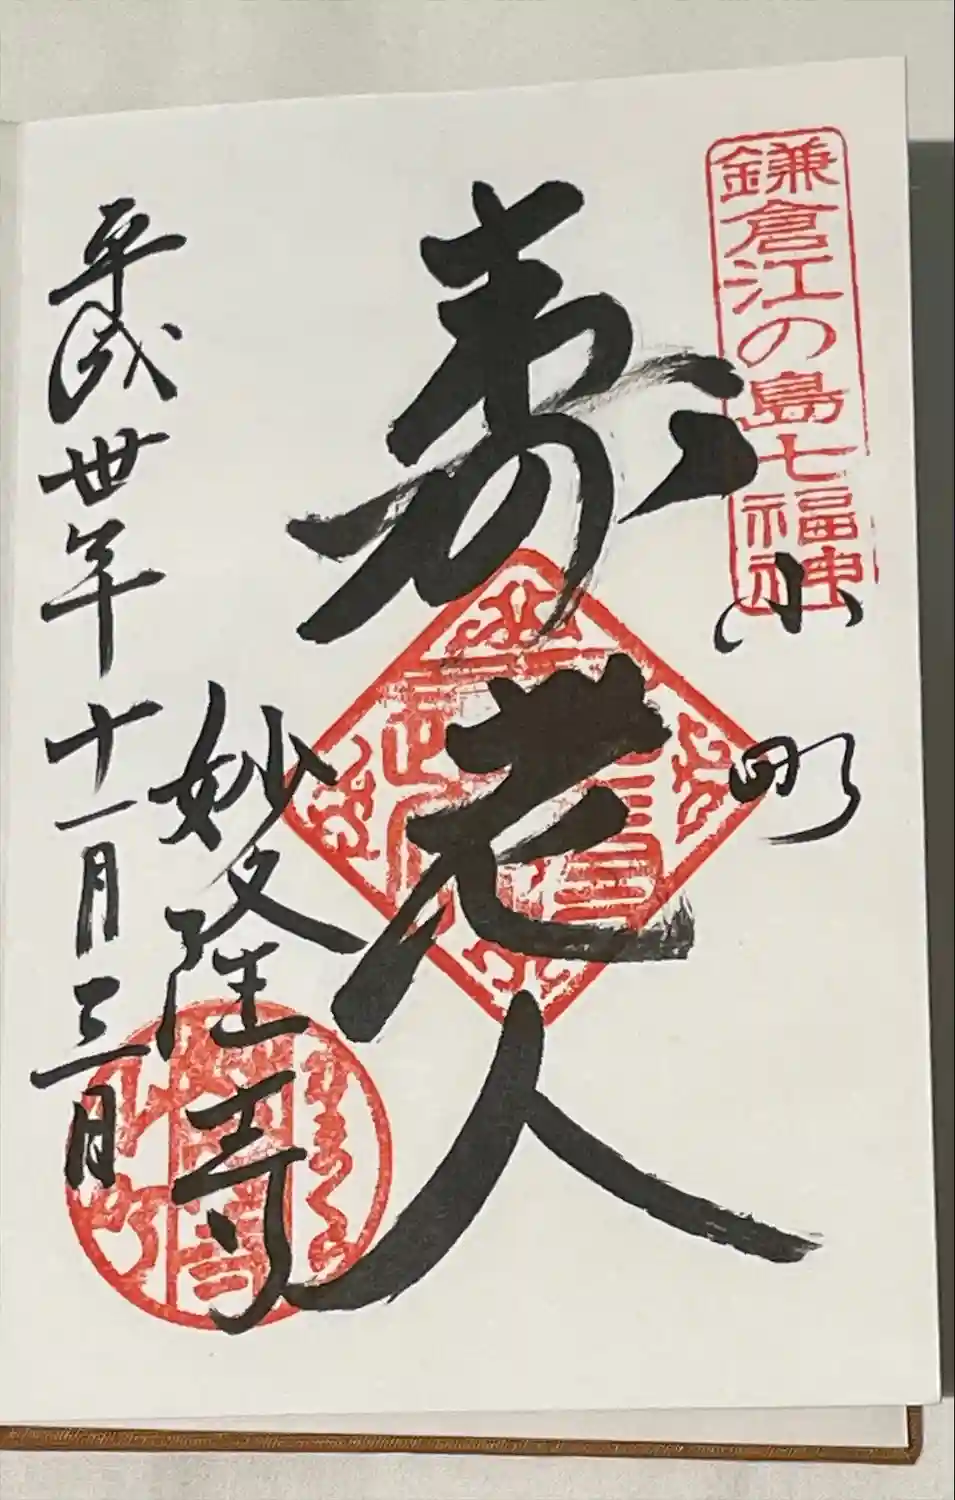 鎌倉江の島七福神
小町
寿老人
妙隆寺
平成丗年十一月三日